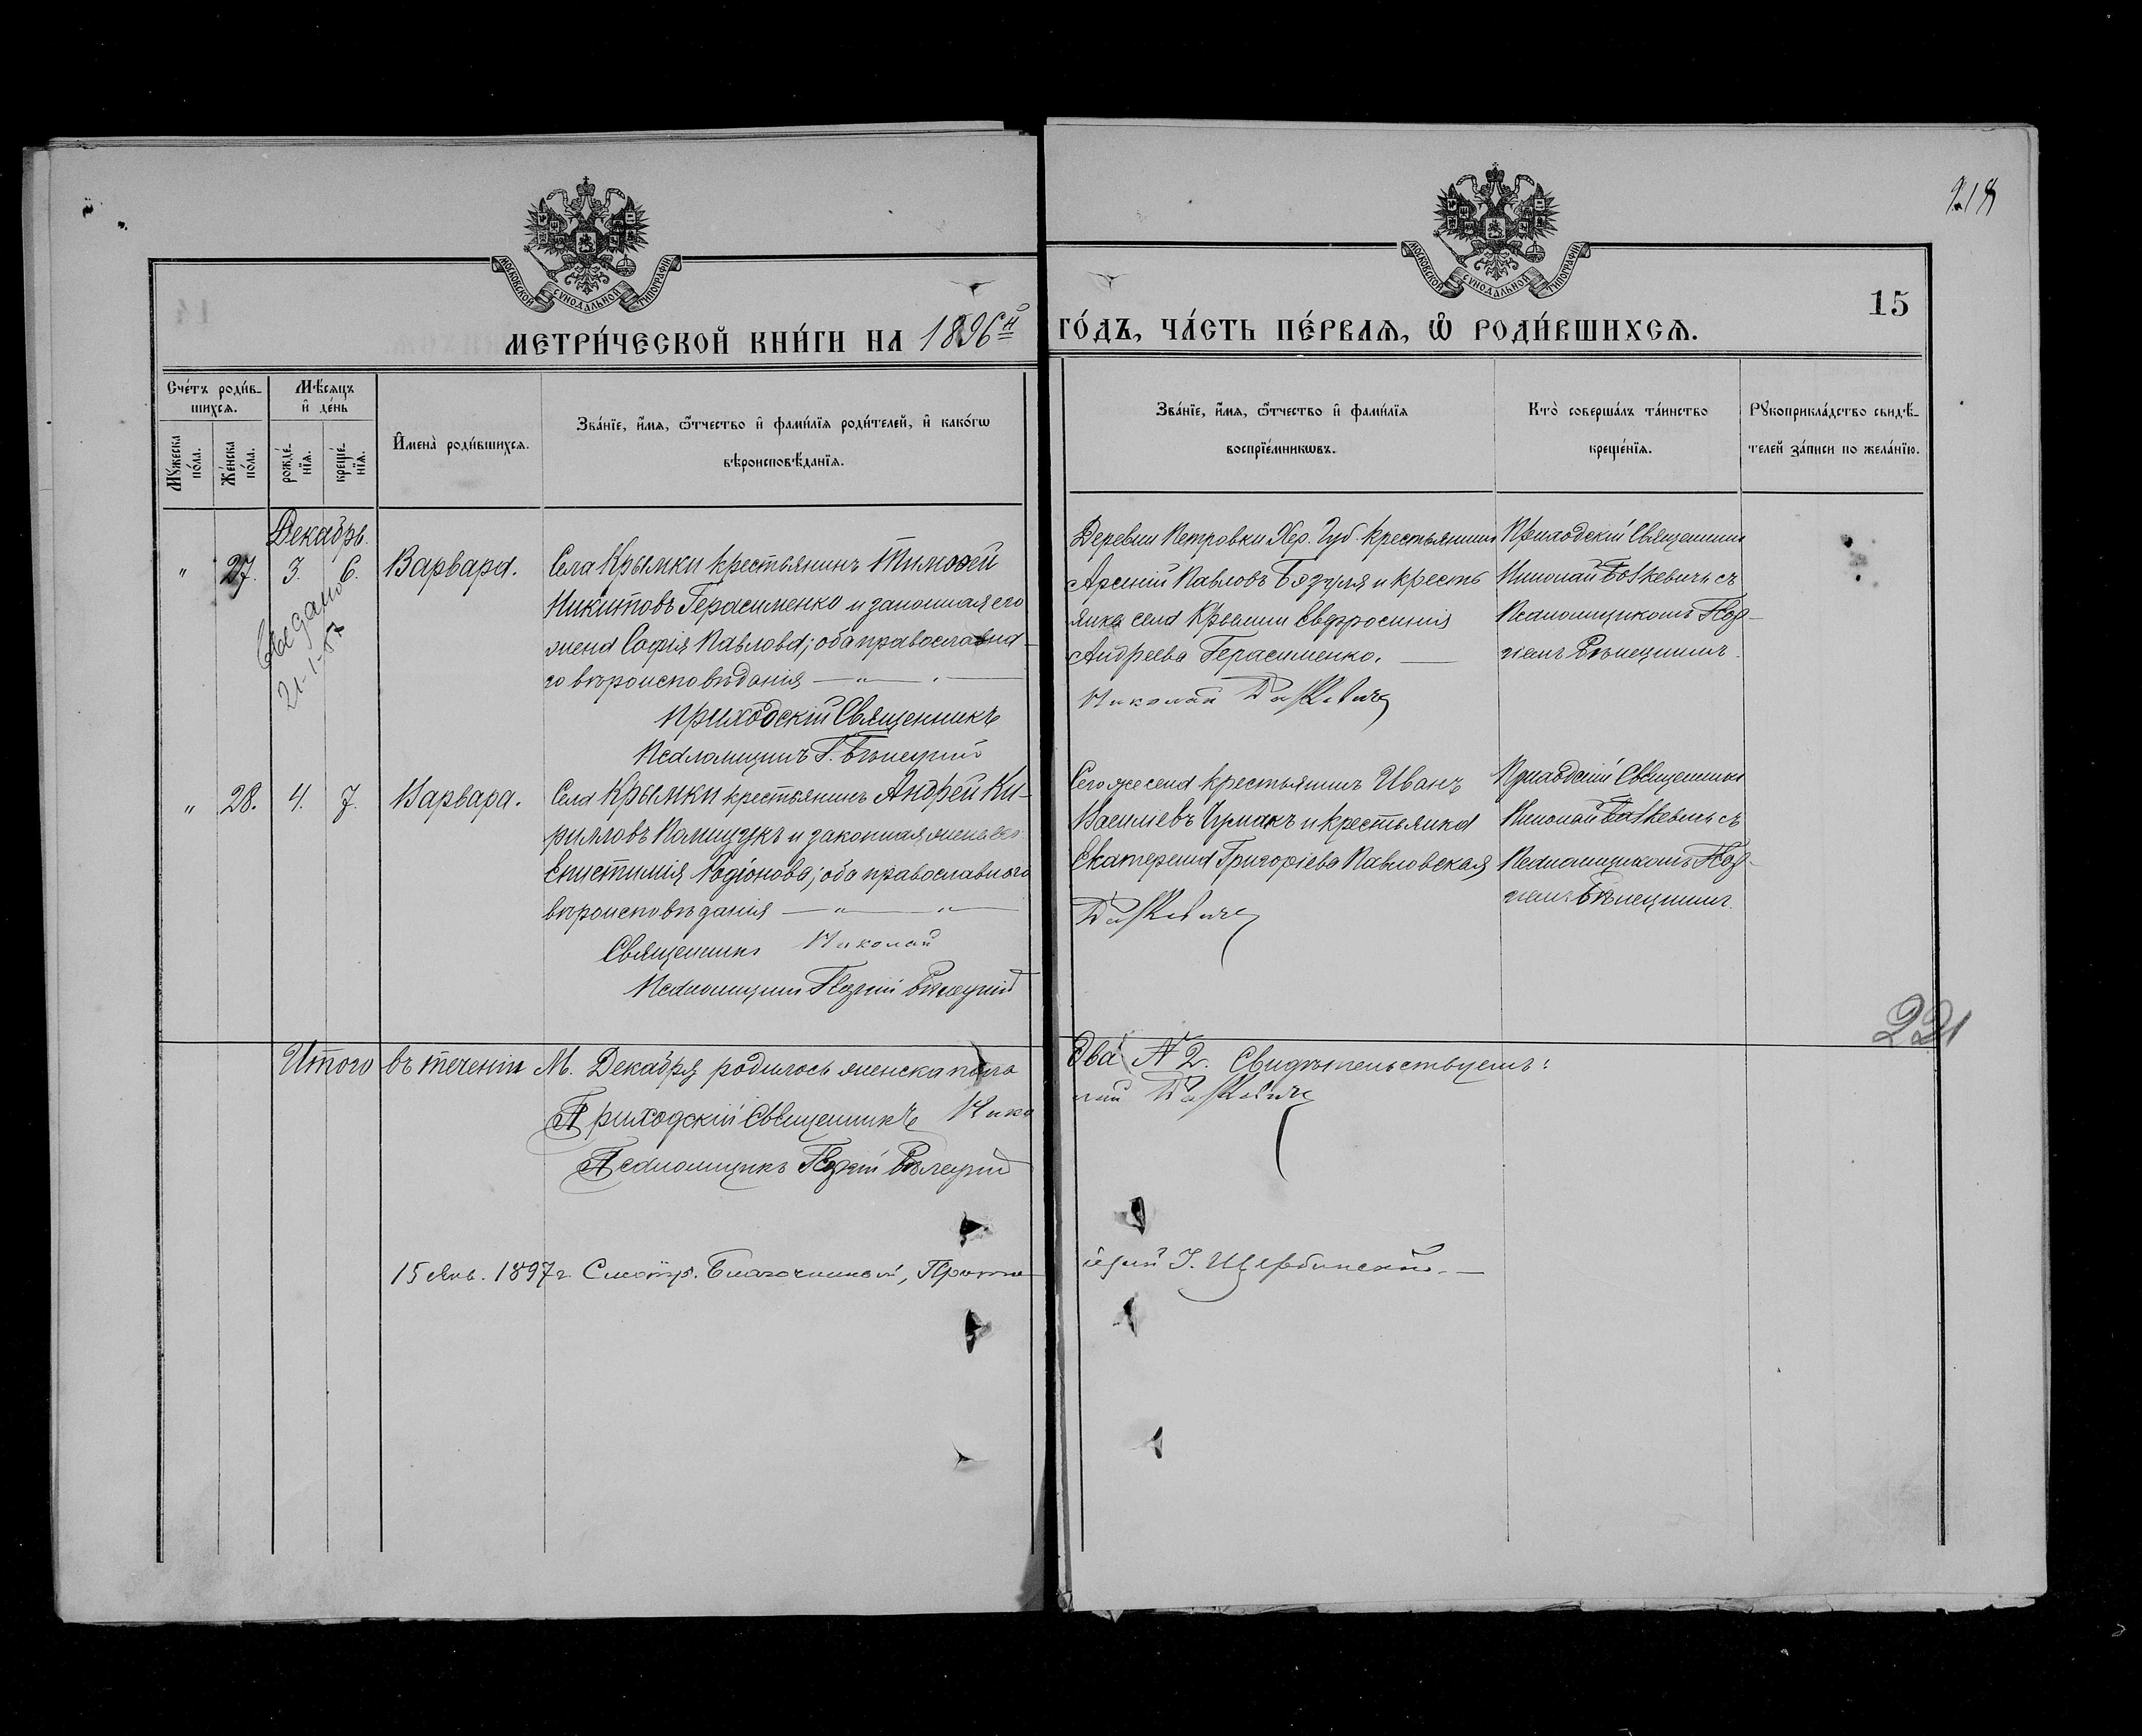 218
МОСКОВСКОЙ СѴНОДАЛЬНОЙ ТИПОГРАФІИ
МОСКОВСКОЙ СѴНОДАЛЬНОЙ ТИПОГРАФІИ
15
МЕТРИ́ЧЕСКОЙ КНИ́ГИ НА 1896й
ГО́ДЪ, ЧА́СТЬ ПЕ́РВАѦ, Ѽ РОДИ́ВШИХСѦ.
Сче́тъ роди́в-
шихсѧ.
Мꙋжеска
по́ла.
Же́нска
по́ла.
Мѣ́сѧцъ
и҆ де́нь
рожде́-
нїѧ.
креще́-
нїѧ.
И҆мена̀ роди́вшихсѧ.
Зва́нїе, и҆́мѧ, ѻ҆́тчество и҆ фами́лїѧ роди́телей, и҆ како́гѡ
вѣроисповѣ́данїѧ.
Зва́нїе, и҆́мѧ, ѻ҆́тчество и҆ фами́лїѧ
воспрїе́мникѡвъ.
Кто̀ соверша́лъ та́инство
креще́нїѧ.
Рꙋкоприкла́дство свидѣ́-
телей за́писи по жела́нїю.
Декабрь.
" 27. 3. 6. Варвара.
Села Крымки крестьянинъ Тимоѳей
Никитовъ Герасименко и законная его
жена Софія Павлова; оба православна-
го вѣроисповѣданія — " —
Приходскій Священникъ
Псаломщикъ Г. Бѣлецкій
21-1-
Деревни Петровки Хер. Губ. крестьянинъ
Арсеній Павловъ Бздуля и кресть
янка села Крымки Евфросинія
Андреева Герасименко. —
Николай
Приходскій Священникъ
Николай
Псаломщикомъ
Бѣлецкимъ.
" 28. 4. 7. Варвара.
Села Крымки крестьянинъ Андрей Ки-
рилловъ Палищукъ и законная жена его
Епистимія Родіонова; оба православнаго
вѣроисповѣданія — " — " —
Священникъ Николай
Псаломщикъ Бѣлецкій
Сего же села крестьянинъ Иванъ
Василіевъ Чумакъ и крестьянка
Екатерина Григоріева Павловская
Приходскій Священникъ
Николай
Псаломщикомъ
Бѣлецкимъ.
221
Итого въ теченіи М. Декабря родилось женска пола
Два № 2. Свидѣтельствуемъ:
Приходскій Священникъ Нико
лай
Псаломщикъ Бѣлецкій
15 Янв. 1897 г. Смотр. Благочинный, Прото-
іерей І. Щербинскій. —